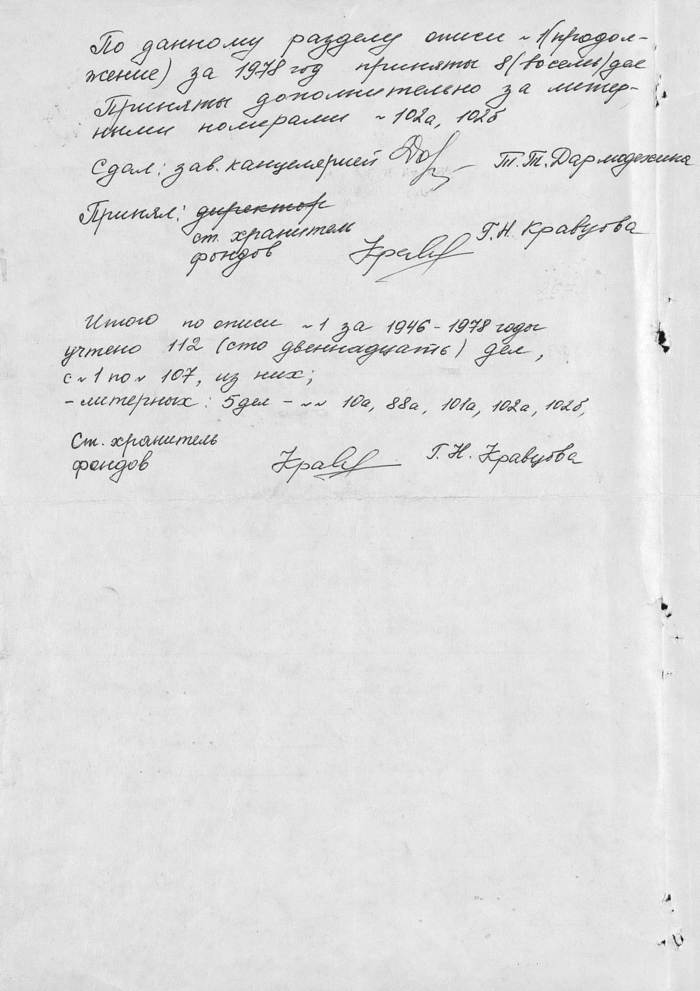 По данному разделу описи №1 (продол-
жение) за 1978 год приняты 8 (восемь) дел
Приняты дополнительно за литер-
ными номерами № 102а, 102б
Сдал: зав. канцелярией Т.Т. Дармодехина
Принял: директор
ст. хранитель Г.Н. Кравцова
фондов
Итого по описи №1 за 1946-1978 годы
учтено 112 (сто двеннадцать) дел,
с №1 по № 107, из них;
- литерных: 5 дел - №№ 10а, 88а, 101а, 102а, 102б,
Ст. хранитель
фондов Г.Н. Кравцова